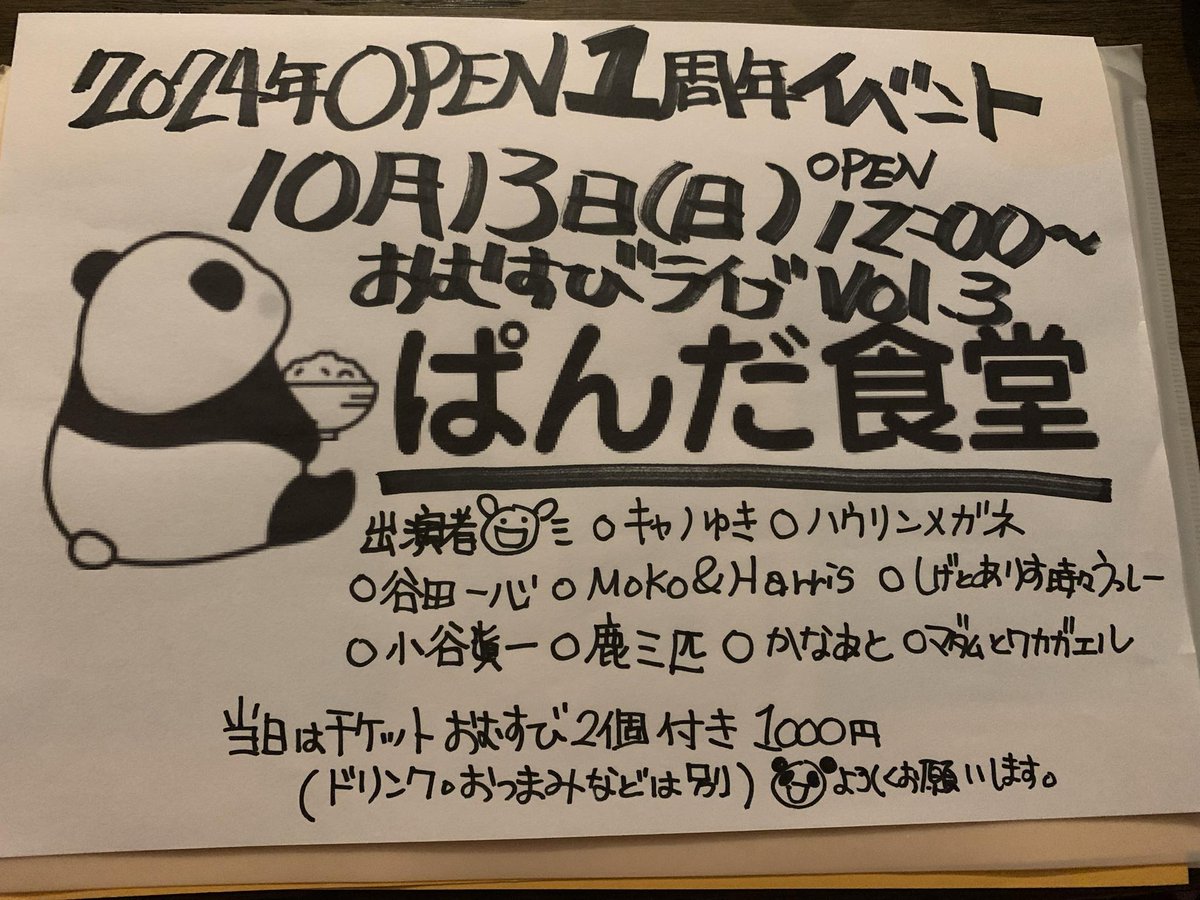 2024年OPEN1周年イベント
10月13日(日) OPEN 12:00〜
おむすびライブ Vol.3
ぱんだ食堂
出演者 ○キャノゆき○ハウリンメガネ
○谷田一心 ○Moko&Harris ○しげとありす時々うっしー
○小谷眞一 ○鹿三匹 ○かなあと ○マダムとワカガエル
当日はチケットおむすび2個付き 1000円
(ドリンク。おつまみなどは別) よろしくお願いします。